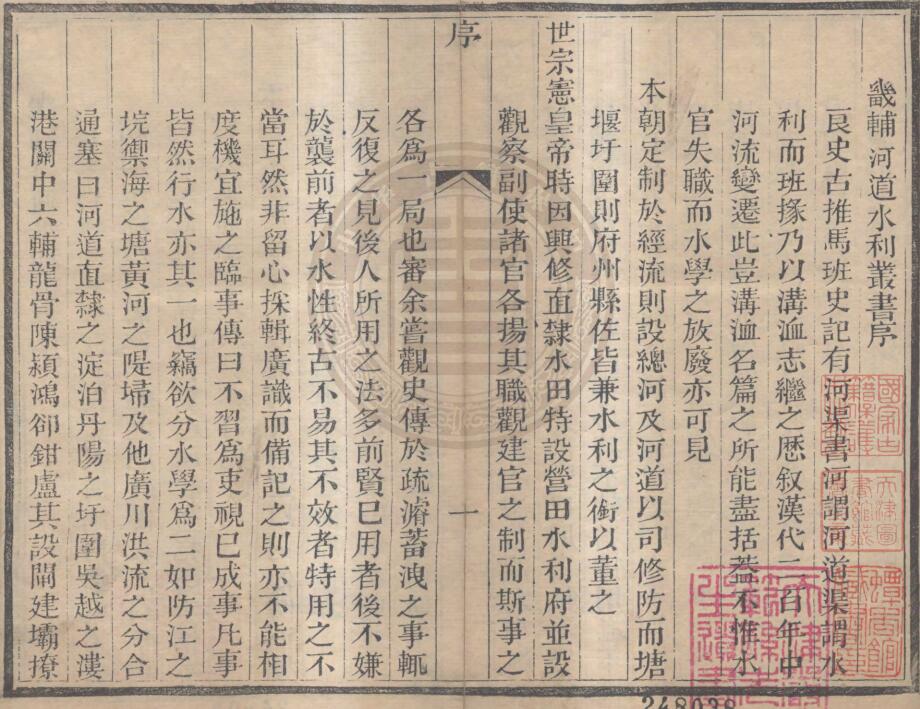 畿輔河道水利叢書序
良史古推馬班史記有河渠書河謂河道渠謂水
利而班掾乃以溝洫志繼之歷叙漢代二百年中
河流變遷此豈溝洫名篇之所能盡括葢不惟水
官失職而水學之放廢亦可見
本朝定制於經流則設總河及河道以司修防而塘
堰圩圍則府州縣佐皆兼水利之銜以董之
世宗憲皇帝時因興修直隸水田特設營田水利府並設
觀察副使諸官各揚其職觀建官之制而斯事之
序
一
各爲一局也審余嘗觀史傳於疏濬蓄洩之事輒
反復之見後人所用之法多前賢已用者後不嫌
於襲前者以水性終古不易其不效者特用之不
當耳然非留心採輯廣識而備記之則亦不能相
度機宜施之臨事傳曰不習爲吏視已成事凡事
皆然行水亦其一也竊欲分水學爲二如防江之
垸禦海之塘黃河之隄埽及他廣川洪流之分合
通塞曰河道直隸之淀泊丹陽之圩圍吳越之漊
港關中六輔龍骨陳潁鴻郤鉗盧其設閘建壩撩
248038